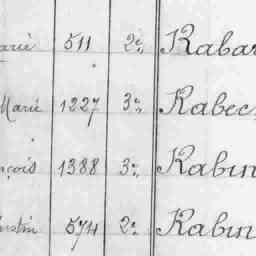 arie 511 2e Rabar
Marie 1227 3e Rabec
nçois 1388 3e Rabin
ustin 574 2e Rabin